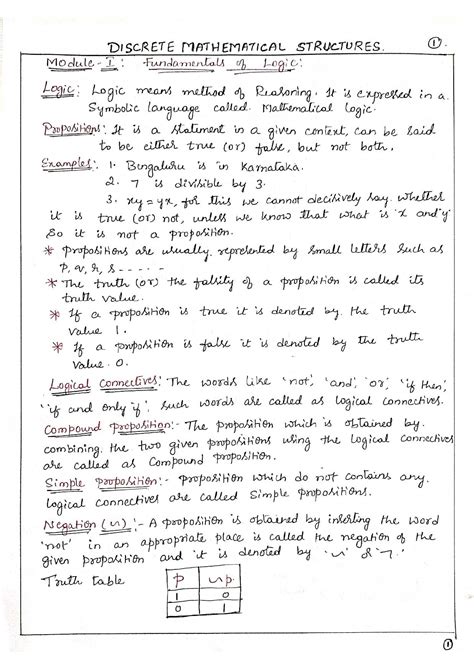 DISCRETE MATHEMATICAL STRUCTURES. ①.
Module - I : Fundamentals of Logic:
Logic: Logic means method of Reasoning. It is expressed in a
Symbolic language called Mathematical logic.
Propositions: It is a statement in a given context, can be said
to be either true (or) false, but not both.
Examples: 1. Bengaluru is in Karnataka.
2. 7 is divisible by 3.
3. xy = yx, for this we cannot decisively say whether
it is true (or) not, unless we know that what is 'x' and 'y'
So it is not a proposition.
* Propositions are usually represented by small letters such as
p, q, r, s - - - - -
* The truth (or) the falsity of a proposition is called its
truth value.
* If a proposition is true it is denoted by the truth
value 1.
* If a proposition is false it is denoted by the truth
value 0.
Logical Connectives: The words like 'not', 'and', 'or', 'if then',
'if and only if', such words are called as logical connectives.
Compound proposition:- The proposition which is obtained by
combining the two given propositions using the logical connectives
are called as Compound proposition.
Simple proposition:- proposition which do not contains any
logical connectives are called Simple propositions.
Negation (∼):- A proposition is obtained by inserting the word
'not' in an appropriate place is called the negation of the
given proposition and it is denoted by '∼' & '¬'.
Truth table p ∼p
1 0
0 1
①